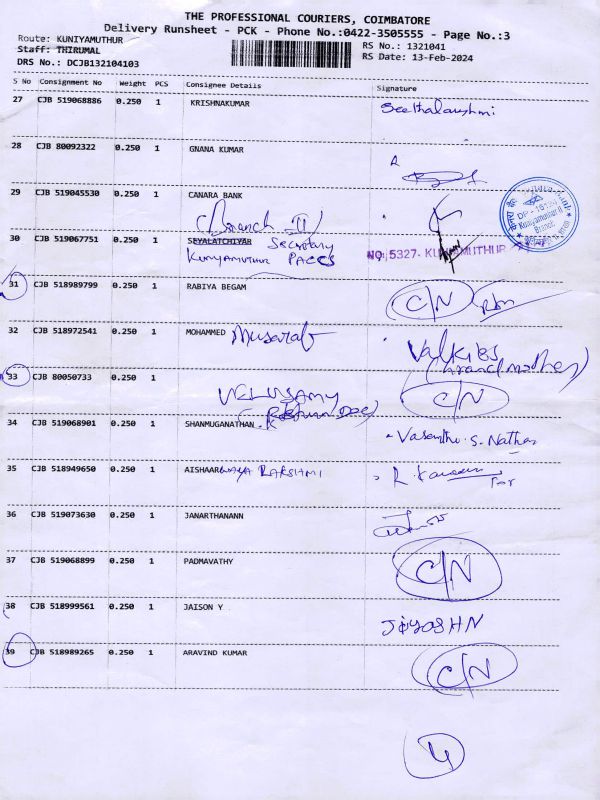 THE PROFESSIONAL COURIERS, COIMBATORE
Delivery Runsheet - PCK - Phone No.:0422-3505555 - Page No.:3
Route: KUNIYAMUTHUR
RS No.: 1321041
Staff: THIRUMAL
RS Date: 13-Feb-2024
DRS No.: DCJB132104103
S No Consignment No Weight PCS Consignee Details Signature
27 CJB 519068886 0.250 1 KRISHNAKUMAR Seethalakshmi
28 CJB 80092322 0.250 1 GNANA KUMAR
29 CJB 519045530 0.250 1 CANARA BANK
(Branch II)
30 CJB 519067751 0.250 1 SEYALATCHIYAR Secretary
Kuniyamuthur PACCS NO. 5327. KUNIYAMUTHUR
31 CJB 518989799 0.250 1 RABIYA BEGAM C/N
32 CJB 518972541 0.250 1 MOHAMMED Musaraf Valkibs
(Grandmother)
33 CJB 80050733 0.250 1 C/N
VELUSAMY
34 CJB 519068901 0.250 1 SHANMUGANATHAN .K Vasantha. S. Nathan
35 CJB 518949650 0.250 1 AISHAARWAYA LAKSHMI
36 CJB 519073630 0.250 1 JANARTHANANN
37 CJB 519068899 0.250 1 PADMAVATHY C/N
38 CJB 518999561 0.250 1 JAISON Y
39 CJB 518989265 0.250 1 ARAVIND KUMAR C/N
4